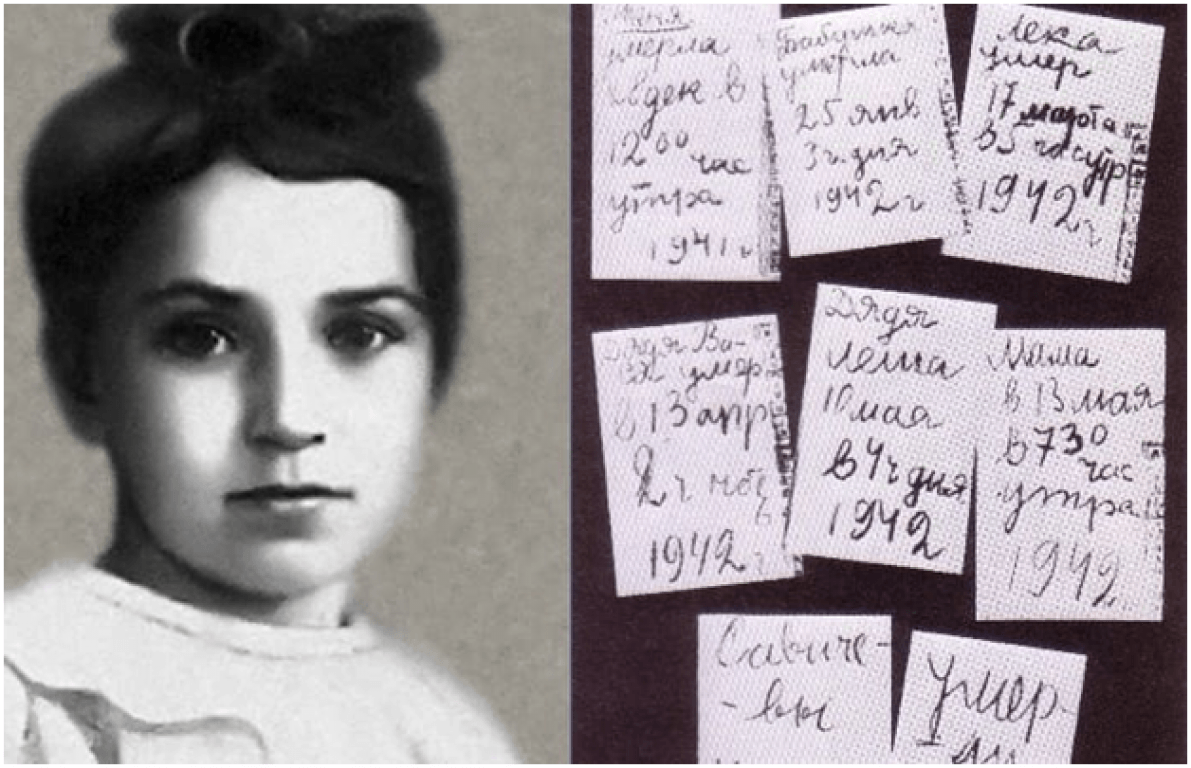 Женя
умерла
28 дек в
12 00 час
утра
1941 г
Бабушка
умерла
25 янв
3 ч. дня
1942 г
Лека
умер
17 марта
в 5 час утр
1942 г
Дядя Ва-
ся умер
в 13 апр
2 ч ноч
1942 г
Дядя
Леша
10 мая
в 4 ч дня
1942
Мама
в 13 мая
в 7 30
час
утра
1942
Савиче-
-вы
Умер-
-ли